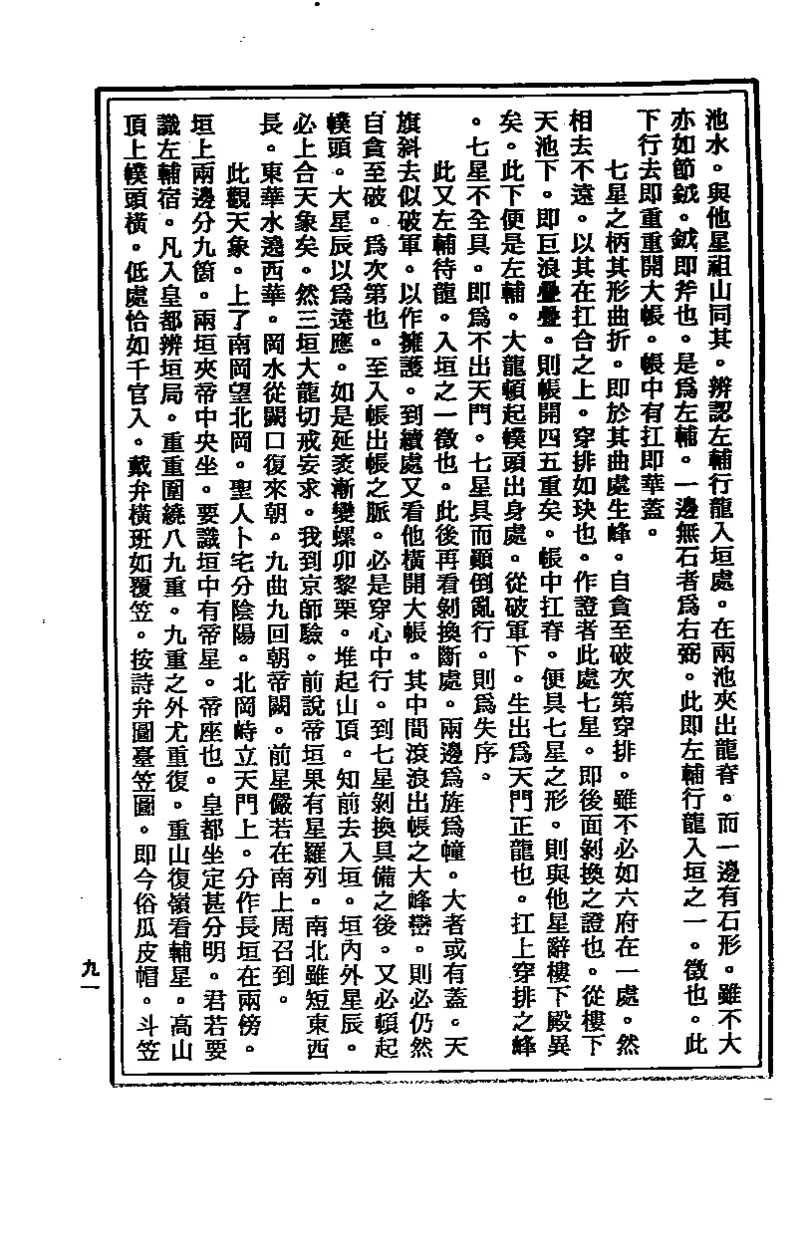 池水。與他星祖山同其。辨認左輔行龍入垣處。在兩池夾出龍脊。而一邊有石形。雖不大
亦如節鉞。鉞即斧也。是爲左輔。一邊無石者爲右弼。此即左輔行龍入垣之一。徵也。此
下行去即重重開大帳。帳中有扛即華蓋。
七星之柄其形曲折。即於其曲處生峰。自貪至破次第穿排。雖不必如六府在一處。然
相去不遠。以其在扛合之上。穿排如玦也。作證者此處七星。即後面剝換之證也。從樓下
天池下。即巨浪疊疊。則帳開四五重矣。帳中扛脊。便具七星之形。則與他星辭樓下殿異
矣。此下便是左輔。大龍頓起幞頭出身處。從破軍下。生出爲天門正龍也。扛上穿排之峰
。七星不全具。即爲不出天門。七星具而顚倒亂行。則爲失序。
此又左輔待龍。入垣之一徵也。此後再看剝換斷處。兩邊爲旌爲幢。大者或有蓋。天
旗斜去似破軍。以作擁護。到續處又看他橫開大帳。其中間滾浪出帳之大峰巒。則必仍然
自貪至破。爲次第也。至入帳出帳之脈。必是穿心中行。到七星剝換具備之後。又必頓起
幞頭。大星辰以爲遠應。如是延袤漸變螺卯黎栗。堆起山頂。知前去入垣。垣內外星辰。
必上合天象矣。然三垣大龍切戒妄求。我到京師驗。前說帝垣果有星羅列。南北雖短東西
長。東華水遶西華。岡水從闕口復來朝。九曲九回朝帝闕。前星儼若在南上周召到。
此觀天象。上了南岡望北岡。聖人卜宅分陰陽。北岡峙立天門上。分作長垣在兩傍。
垣上兩邊分九箇。兩垣夾帝中央坐。要識垣中有帝星。帝座也。皇都坐定甚分明。君若要
識左輔宿。凡入皇都辨垣局。重重圍繞八九重。九重之外尤重復。重山復嶺看輔星。高山
頂上幞頭橫。低處恰如千官入。戴弁橫班如覆笠。按詩弁圖臺笠圖。即今俗瓜皮帽。斗笠
九一